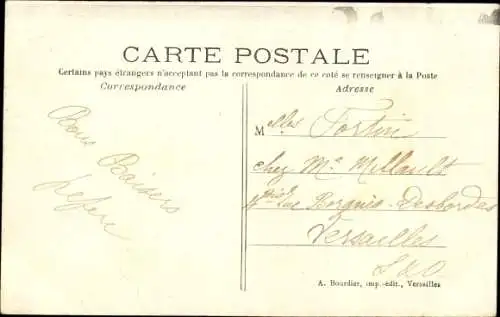 CARTE POSTALE
Certains pays étrangers n'acceptant pas la correspondance de ce coté se renseigner à la Poste
Correspondance
Adresse
Bons Baisers
Melles Fortin
chez Me Millault
rue Borgnis-Desbordes
Versailles
S & O
A. Bourdier, imp.-édit., Versailles